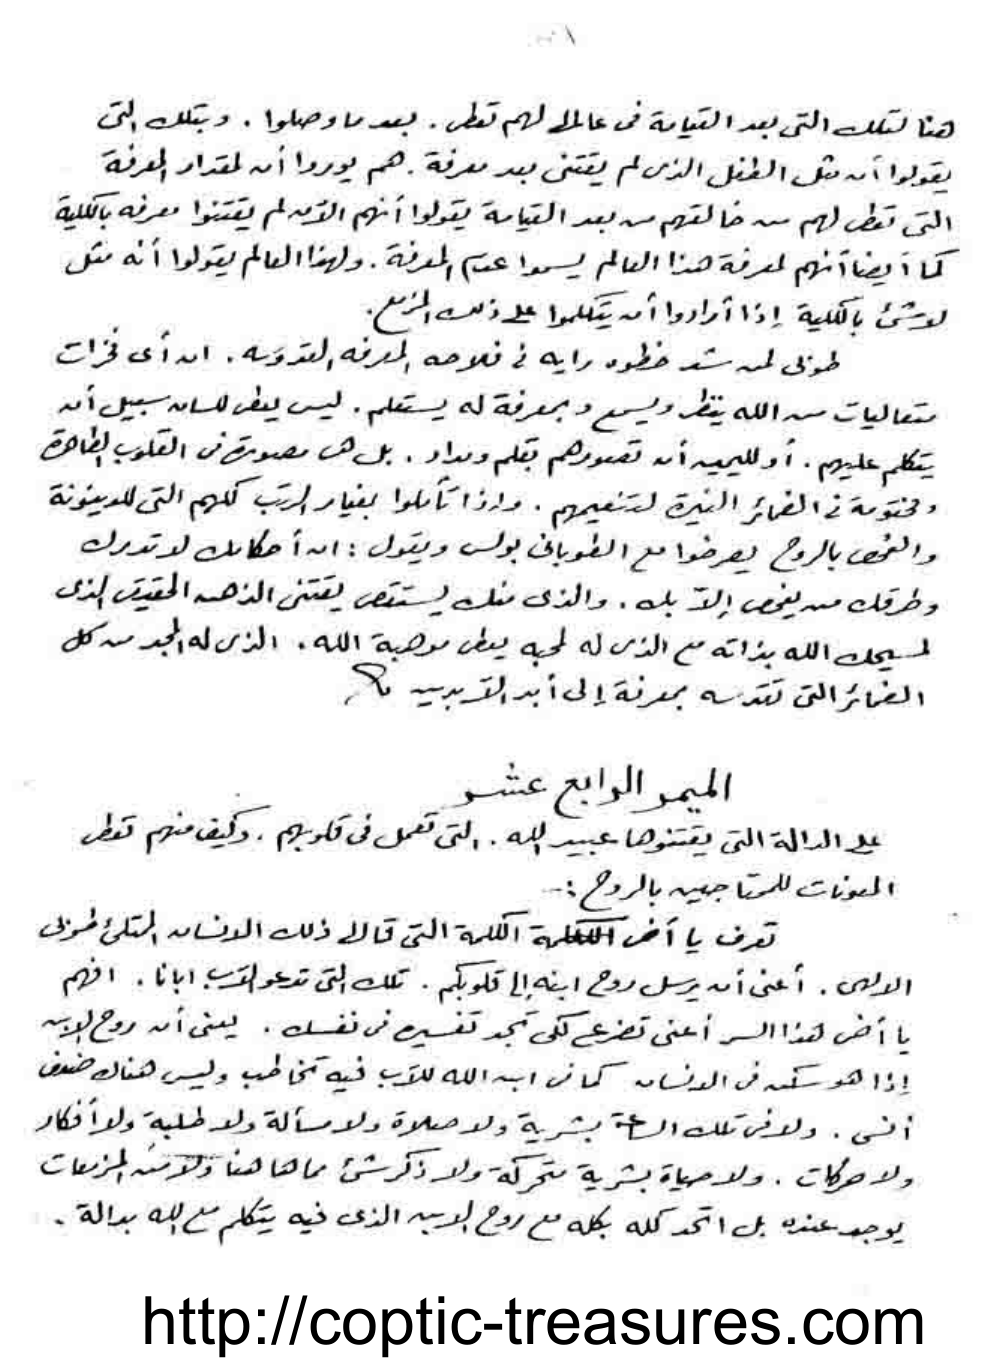 هنا لتلك التى بعد القيامة فى عالم لهم تعطى. بعد ما وصلوا. وبتلك التى
يقولوا أن مثل الطفل الذى لم يقتنى بعد معرفة. هم يوروا أن لمقدار المعرفة
التى تعطى لهم من خالقهم من بعد القيامة يقولوا أنهم الآن لم يقتنوا معرفه بالكلية
كما أيضا أنهم لمعرفة هذا العالم يسموا عدم المعرفة. ولهذا العالم يقولوا أنه مثل
لاشئ بالكلية إذا أرادوا أن يتكلموا على ذلك المزمع.
طوبى لمن شد خطوه رايه فى فلاحه المعرفه المقدوسه. ان أى فخرات
متعاليات من الله ينظر ويسمع وبمعرفة له يستعلم. ليس يعطى للسان سبيل أن
يتكلم عليهم. أو لليمين أن تصورهم بقلم ومداد. بل هى مصورة فى القلوب الطاهرة
ومختومة فى الضمائر النيرة لتنعيمهم. واذا تأملوا بغيار الرتب كلهم التى للدينونة
والفحص بالروح يصرخوا مع الطوبانى بولس ويقول: ان أحكامك لا تدرك
وطرقك من يفحص إلا بك. والذى منك يستقصى يقتنى الذهن الحقيقى الذى
لمسيحك الله بذاته مع الذى له لمحبه يعطى موهبة الله. الذى له المجد من كل
الضمائر التى تتقدس بمعرفة إلى أبد الآبدين
الميمر الرابع عشر
على الدالة التى يقتنوها عبيد الله. التى تعمل فى قلوبهم. وكيف منهم تعطى
المعونات للمحتاجين بالروح :-
تعرف يا أخى الكلمة التى قالها ذلك الانسان الممتلئ طوبى
الالهى. أعنى أن يرسل روح ابنه إلى قلوبكم. تلك التى تدعو الآب ابانا. افهم
يا أخى هذا السر أعنى تضرع لكى تجد تفسيره فى نفسك. يعنى أن روح الابن
إذا هو سكن فى الانسان كما فى ابن الله للآب فيه تخاطب وليس هناك ضعف
أنسى. ولا فى تلك الساعة بشرية ولا صلاة ولا مسألة ولا طلبة ولا أفكار
ولا حركات. ولا حياة بشرية متحركة ولا ذكر شئ مما هاهنا ولا من المزمعات
يوجد عنده بل اتحد كله بكله مع روح الابن الذى فيه يتكلم مع الله بدالة.
http://coptic-treasures.com